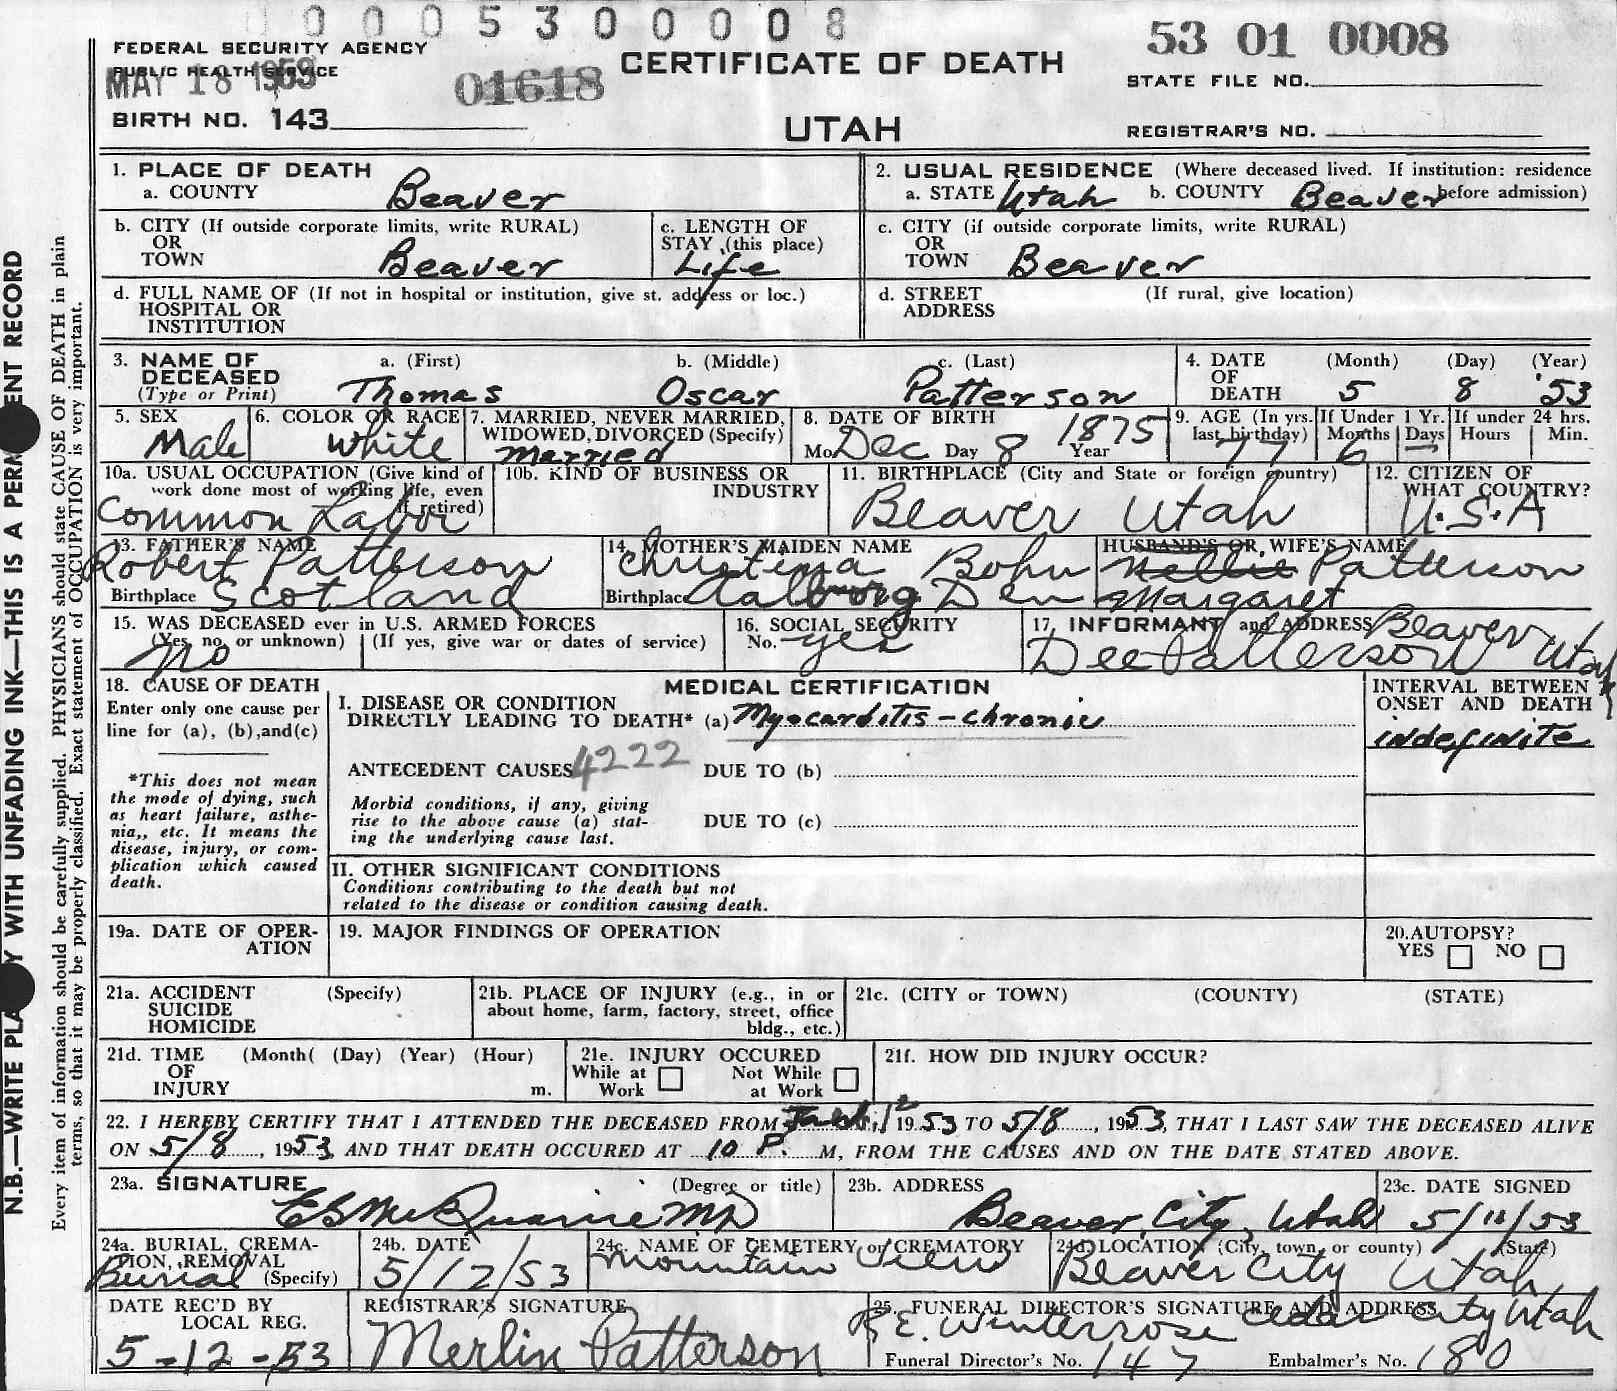 0 0 0 5 3 0 0 0 0 8
FEDERAL SECURITY AGENCY
PUBLIC HEALTH SERVICE
MAY 18 1953
01618
CERTIFICATE OF DEATH
53 01 0008
STATE FILE NO.
BIRTH NO. 143
UTAH
REGISTRAR'S NO.
1. PLACE OF DEATH
a. COUNTY Beaver
2. USUAL RESIDENCE (Where deceased lived. If institution: residence
a. STATE Utah b. COUNTY Beaver before admission)
b. CITY (If outside corporate limits, write RURAL)
OR
TOWN Beaver
c. LENGTH OF
STAY (this place)
Life
c. CITY (if outside corporate limits, write RURAL)
OR
TOWN Beaver
d. FULL NAME OF (If not in hospital or institution, give st. address or loc.)
HOSPITAL OR
INSTITUTION
d. STREET (If rural, give location)
ADDRESS
3. NAME OF a. (First) b. (Middle) c. (Last)
DECEASED
(Type or Print) Thomas Oscar Patterson
4. DATE (Month) (Day) (Year)
OF
DEATH 5 8 '53
5. SEX
Male
6. COLOR OR RACE
White
7. MARRIED, NEVER MARRIED,
WIDOWED, DIVORCED (Specify)
Married
8. DATE OF BIRTH
Mo. Dec Day 8 Year 1875
9. AGE (In yrs. last birthday)
77
If Under 1 Yr.
Months Days
6 —
If under 24 hrs.
Hours Min.
10a. USUAL OCCUPATION (Give kind of
work done most of working life, even
if retired)
Common Labor
10b. KIND OF BUSINESS OR
INDUSTRY
11. BIRTHPLACE (City and State or foreign country)
Beaver Utah
12. CITIZEN OF
WHAT COUNTRY?
U.S.A
13. FATHER'S NAME
Robert Patterson
Birthplace Scotland
14. MOTHER'S MAIDEN NAME
Christina Bohn
Birthplace Aalborg Den
HUSBAND'S OR WIFE'S NAME
Nellie Patterson
Margaret
15. WAS DECEASED ever in U.S. ARMED FORCES
(Yes, no, or unknown) (If yes, give war or dates of service)
No
16. SOCIAL SECURITY
No. yes
17. INFORMANT and ADDRESS Beaver
Dee Patterson Utah
18. CAUSE OF DEATH
Enter only one cause per
line for (a), (b), and (c)
*This does not mean
the mode of dying, such
as heart failure, asthe-
nia,, etc. It means the
disease, injury, or com-
plication which caused
death.
MEDICAL CERTIFICATION
I. DISEASE OR CONDITION
DIRECTLY LEADING TO DEATH* (a) Myocarditis - chronic
ANTECEDENT CAUSES 4222 DUE TO (b)
Morbid conditions, if any, giving
rise to the above cause (a) stat-
ing the underlying cause last.
DUE TO (c)
INTERVAL BETWEEN
ONSET AND DEATH
indefinite
II. OTHER SIGNIFICANT CONDITIONS
Conditions contributing to the death but not
related to the disease or condition causing death.
19a. DATE OF OPER-
ATION
19. MAJOR FINDINGS OF OPERATION
20. AUTOPSY?
YES NO
21a. ACCIDENT (Specify)
SUICIDE
HOMICIDE
21b. PLACE OF INJURY (e.g., in or
about home, farm, factory, street, office
bldg., etc.)
21c. (CITY or TOWN) (COUNTY) (STATE)
21d. TIME (Month( (Day) (Year) (Hour)
OF
INJURY m.
21e. INJURY OCCURED
While at Work Not While at Work
21f. HOW DID INJURY OCCUR?
22. I HEREBY CERTIFY THAT I ATTENDED THE DECEASED FROM 1953 TO 5/8, 1953, THAT I LAST SAW THE DECEASED ALIVE
ON 5/8, 1953 AND THAT DEATH OCCURED AT 10 P. M, FROM THE CAUSES AND ON THE DATE STATED ABOVE.
23a. SIGNATURE (Degree or title)
MD
23b. ADDRESS
Beaver City, Utah
23c. DATE SIGNED
24a. BURIAL, CREMA-
TION, REMOVAL
(Specify)
Burial
24b. DATE
5/12/53
24c. NAME OF CEMETERY or CREMATORY
Mountain View
24d. LOCATION (City, town, or county) (State)
Beaver City Utah
DATE REC'D BY
LOCAL REG.
5-12-53
REGISTRAR'S SIGNATURE
Merlin Patterson
25. FUNERAL DIRECTOR'S SIGNATURE AND ADDRESS
E. Winterrose Cedar City Utah
Funeral Director's No. 147 Embalmer's No. 180
N.B.—WRITE WITH UNFADING INK—THIS IS A RECORD
Every item of information should be carefully supplied. PHYSICIANS should state CAUSE OF DEATH in plain
terms, so that it may be properly classified. Exact statement of OCCUPATION is very important.